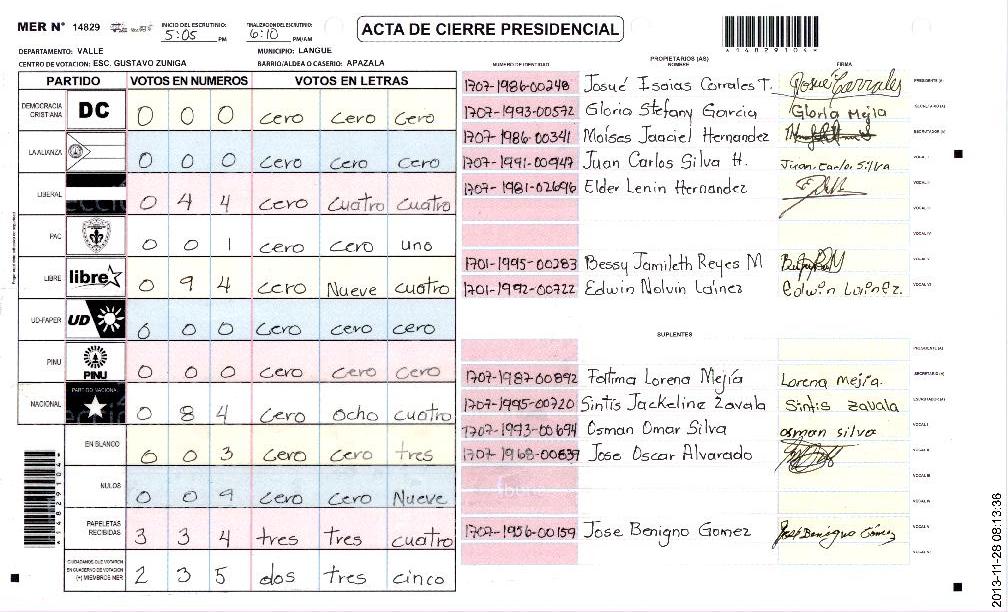 MER Nº 14829 INICIO DEL ESCRUTINIO: 5:05 PM FINALIZACION DEL ESCRUTINIO: 6:10 PM/AM
ACTA DE CIERRE PRESIDENCIAL
A14829104
DEPARTAMENTO: VALLE MUNICIPIO: LANGUE
CENTRO DE VOTACION: ESC. GUSTAVO ZUNIGA BARRIO/ALDEA O CASERIO: APAZALA
PARTIDO VOTOS EN NUMEROS VOTOS EN LETRAS
DEMOCRACIA CRISTIANA DC 0 0 0 cero cero cero
LA ALIANZA 0 0 0 cero cero cero
LIBERAL 0 4 4 cero cuatro cuatro
PAC 0 0 1 cero cero uno
LIBRE libre 0 9 4 cero Nueve cuatro
UD-FAPER UD 0 0 0 cero cero cero
PINU PINU 0 0 0 cero cero cero
NACIONAL PARTIDO NACIONAL 0 8 4 cero ocho cuatro
EN BLANCO 0 0 3 cero cero tres
NULOS 0 0 9 cero cero Nueve
PAPELETAS RECIBIDAS 3 3 4 tres tres cuatro
CIUDADANOS QUE VOTARON EN CUADERNO DE VOTACION (+) MIEMBROS MER 2 3 5 dos tres cinco
PROPIETARIOS (AS)
NUMERO DE IDENTIDAD NOMBRE FIRMA
1707-1986-00248 Josué Isaias Corrales T. Josue Corrales PRESIDENTE (A)
1707-1993-00572 Gloria Stefany Garcia Gloria Mejla SECRETARIO (A)
1707-1986-00341 Moises Jaaciel Hernandez ESCRUTADOR (A)
1707-1991-00947 Juan Carlos Silva H. Juan Carlos Silva VOCAL I
1707-1981-02696 Elder Lenin Hernandez VOCAL II
VOCAL III
VOCAL IV
1701-1995-00283 Bessy Jamileth Reyes M VOCAL V
1701-1992-00722 Edwin Nolvin Láinez Edwin Lainez. VOCAL VI
SUPLENTES
PRESIDENTE (A)
1707-1987-00892 Fatima Lorena Mejía Lorena Mejía. SECRETARIO (A)
1707-1995-00720 Sintis Jackeline Zavala Sintis zavala ESCRUTADOR (A)
1707-1993-00694 Osman Omar Silva osman silva VOCAL I
1707-1968-00837 Jose Oscar Alvarado VOCAL II
VOCAL III
VOCAL IV
1707-1956-00159 Jose Benigno Gomez José Benigno Gómez VOCAL V
VOCAL VI
A14829104
2013-11-28 08:13:36